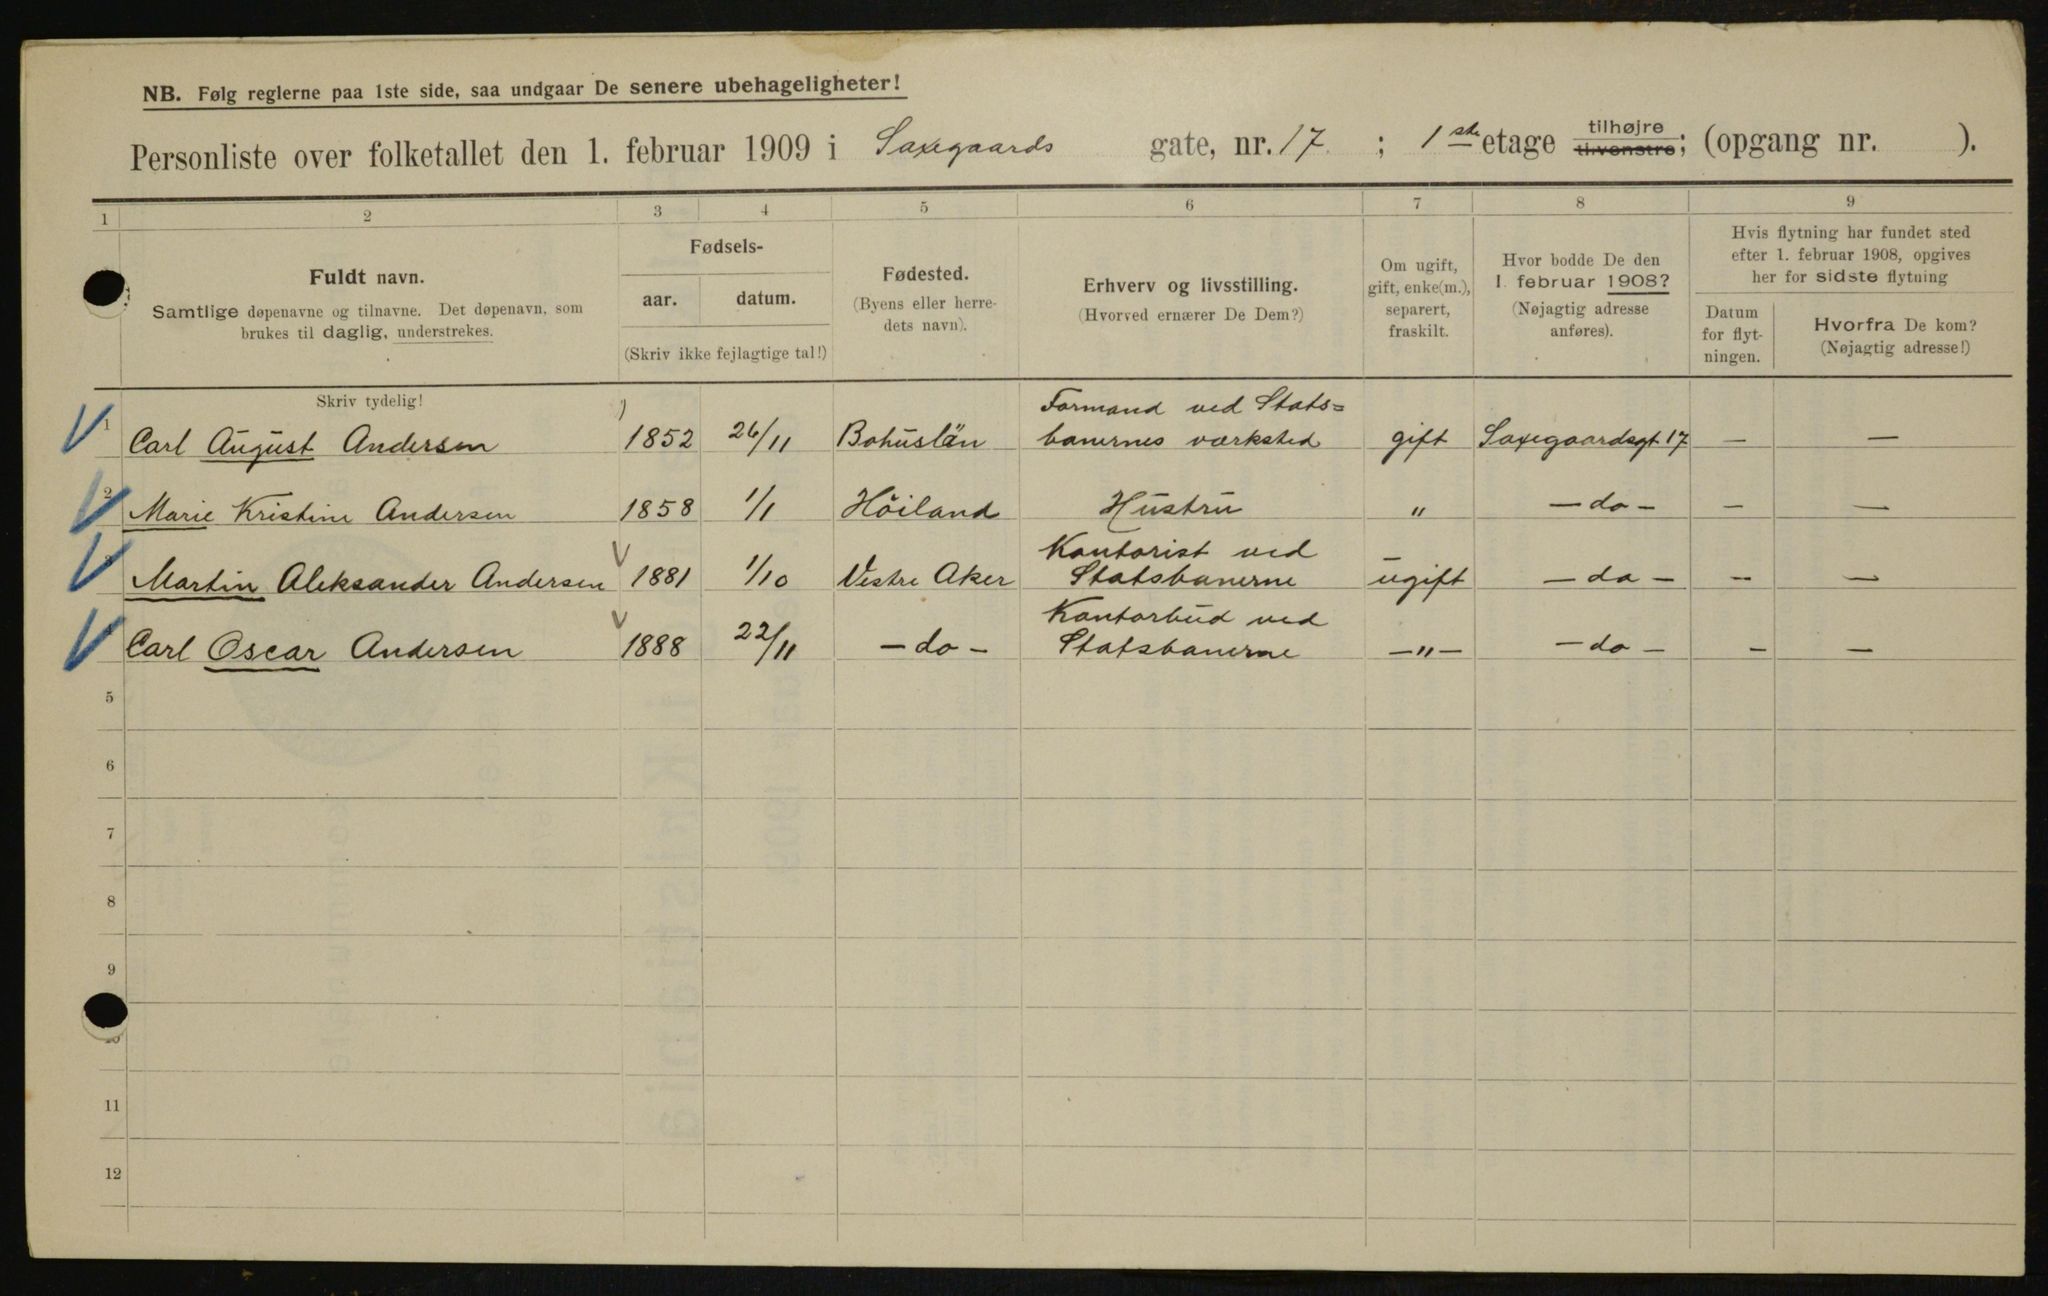 NB. Følg reglerne paa 1ste side, saa undgaar De senere ubehageligheter!
Personliste over folketallet den 1. februar 1909 i Saxegaards gate, nr. 17 ; 1ste etage tilhøjre tilvenstre; (opgang nr. ).
1 2 3 4 5 6 7 8 9
Fuldt navn.
Samtlige døpenavne og tilnavne. Det døpenavn, som
brukes til daglig, understrekes.
Fødsels-
aar. datum.
(Skriv ikke fejlagtige tal!)
Fødested.
(Byens eller herre-
dets navn).
Erhverv og livsstilling.
(Hvorved ernærer De Dem?)
Om ugift,
gift, enke(m.),
separert,
fraskilt.
Hvor bodde De den
1. februar 1908?
(Nøjagtig adresse
anføres).
Hvis flytning har fundet sted
efter 1. februar 1908, opgives
her for sidste flytning
Datum
for flyt-
ningen.
Hvorfra De kom?
(Nøjagtig adresse!)
Skriv tydelig!
1 Carl August Andersen 1852 26/11 Bohuslän Formand ved Stats=
banernes værksted gift Saxegaardsgt 17 — —
2 Marie Kristine Andersen 1858 1/1 Höiland Hustru " — do — — —
3 Martin Aleksander Andersen 1881 1/10 Vestre Aker Kontorist ved
Statsbanerne ugift — do — — —
Carl Oscar Andersen 1888 22/11 — do — Kontorbud ved
Statsbanerne — " — — do — — —
5
6
7
8
9
10
11
12